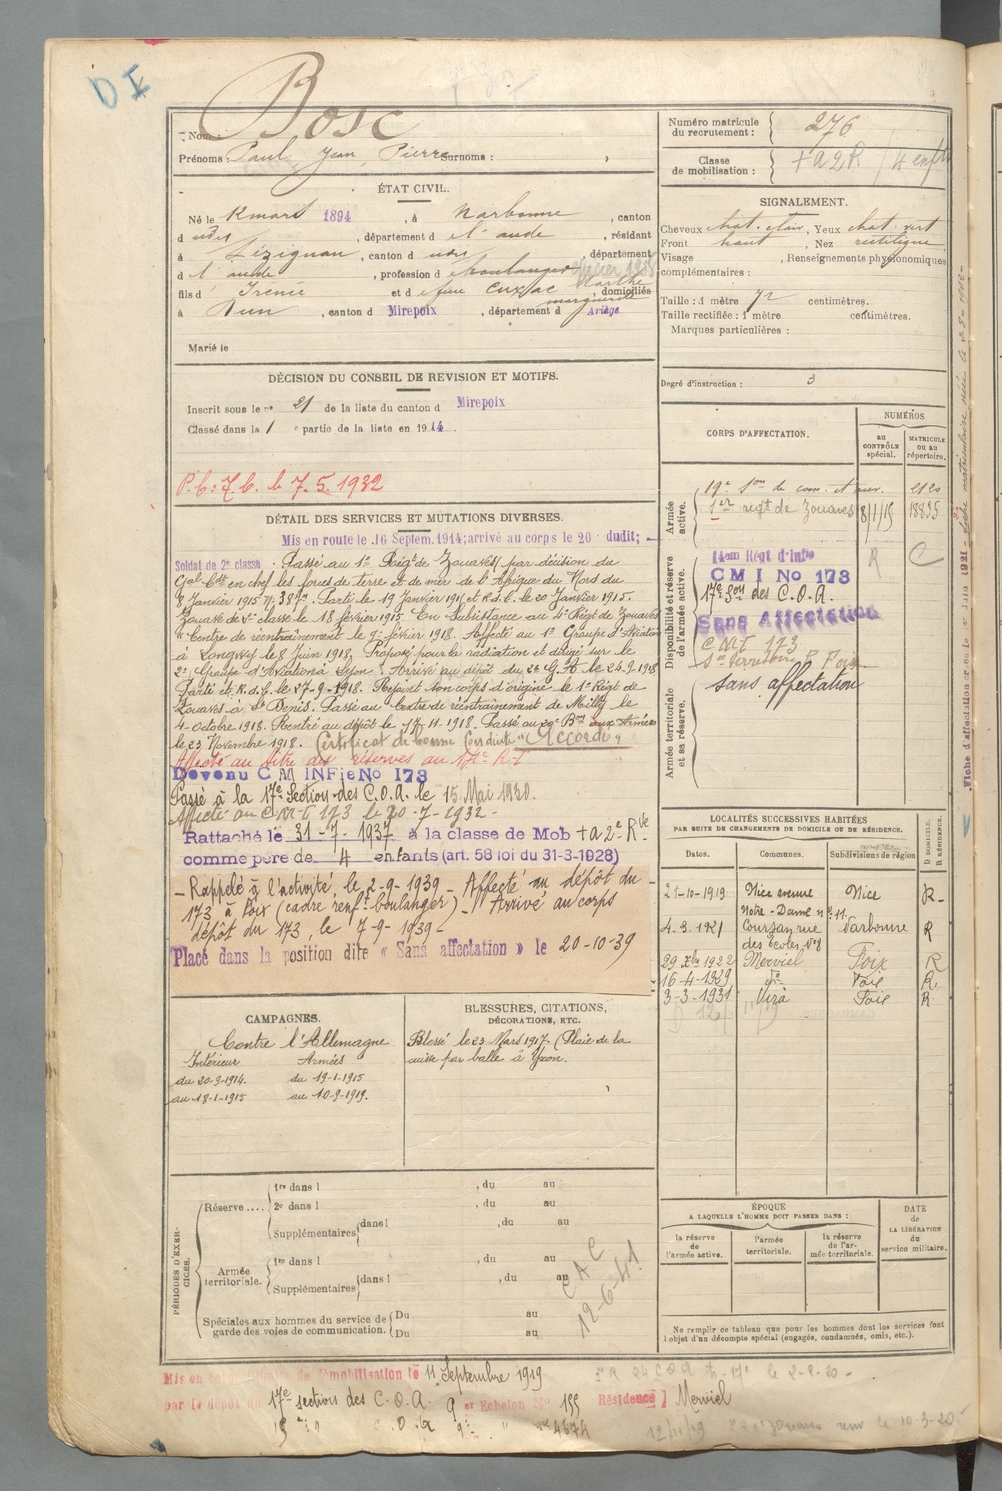 D I
Nom : Bosc
Prénoms : Paul Jean Pierre Surnoms :
Numéro matricule du recrutement : 276
Classe de mobilisation : + a 2 R / 4 enfts
ÉTAT CIVIL.
Né le 12 mars 1894, à Narbonne, canton
d udit, département d e l'aude, résidant
à Lézignan, canton d udit, département
d e l'aude, profession d e boulanger
fils d' Irénée et d e feue Cuxac Marthe marguerite, domiciliés
à Dun, canton d Mirepoix, département d Ariège
Marié le
SIGNALEMENT.
Cheveux chat. clair, Yeux chat. vert
Front haut, Nez rectiligne
Visage , Renseignements physionomiques
complémentaires :
Taille : 1 mètre 72 centimètres.
Taille rectifiée : 1 mètre centimètres.
Marques particulières :
Degré d'instruction : 3
DÉCISION DU CONSEIL DE REVISION ET MOTIFS.
Inscrit sous le n° 21 de la liste du canton d Mirepoix
Classé dans la 1 e partie de la liste en 1914.
P. C. 7. C. le 7. 5. 1932
CORPS D'AFFECTATION.
NUMÉROS
AU CONTRÔLE spécial.
MATRICULE OU AU répertoire.
Armée active.
19e Son de com. et ouv. 2120
1er régt de Zouaves 8/1/15 18835
Disponibilité et réserve de l'armée active.
14em Régt d'Infie R C
C M I No 173
17e Son des C. O. A.
Sans Affectation
C M I 173
Armée territoriale et sa réserve.
Sans affectation
DÉTAIL DES SERVICES ET MUTATIONS DIVERSES.
Mis en route le 16 Septem. 1914; arrivé au corps le 20 dudit;
Soldat de 2e classe. Passé au 1er Régt de Zouaves par décision du
Gal Cdt en chef les forces de terre et de mer de l'Afrique du Nord du
8 Janvier 1915 No 387. Parti le 19 Janvier 1915 et R.d.C. le 20 Janvier 1915.
Zouave de 1re classe le 18 février 1915. En Subsistance au 4e Régt de Zouaves
Centre de réentraînement le 9 février 1918. Affecté au 1er Groupe d'Aviation
à Longwy le 8 Juin 1918. Proposé pour la radiation et dirigé sur le
2e Groupe d'Aviation à Lyon. Arrivé au dépôt du 2e G. A. le 24-9-1918
Parti et R.d.C. le 27-9-1918. Rejoint son corps d'origine le 1er Régt de
Zouaves à St Denis. Passé au Centre de réentraînement de Milly le
4 octobre 1918. Rentré au dépôt le 17-11-1918. Passé au 20e Bon aux Armées
le 23 Novembre 1918. Certificat de bonne Conduite "Accordé"
Affecté au titre des réserves au 14e R. I
Devenu C M INFie No 173
Passé à la 17e Section des C. O. A. le 15 Mai 1930.
Affecté au C M I 173 le 20-7-1932-
Rattaché le 31-7-1937 à la classe de Mob + a 2e Rve
comme père de 4 enfants (art. 58 loi du 31-3-1928)
- Rappelé à l'activité le 2-9-1939 - Affecté au dépôt du
173 à Foix (cadre renft boulanger) - Arrivé au corps
dépôt du 173, le 7-9-1939 -
Placé dans la position dite « Sans affectation » le 20-10-39
LOCALITÉS SUCCESSIVES HABITÉES
PAR SUITE DE CHANGEMENTS DE DOMICILE OU DE RÉSIDENCE.
Dates. Communes. Subdivisions de région D DOMICILE. R RÉSIDENCE.
21-10-1919 Nice avenue Notre-Dame n° 11. Nice R
4-3-1921 Coursan rue des écoles N° 8 Narbonne R
29 Xbre 1922 Merviel Foix R
16-4-1929 do Foix R.
3-3-1931 Vira Foix R
CAMPAGNES.
Contre l'Allemagne
Intérieur Armées
du 20-9-1914. du 19-1-1915
au 18-1-1915 au 10-9-1919.
BLESSURES, CITATIONS,
DÉCORATIONS, ETC.
Blessé le 23 Mars 1917. (Plaie de la
cuisse par balle à Yxon.
PÉRIODES D'EXERCICES.
Réserve.... 1re dans l , du au
2e dans l , du au
Supplémentaires dans l , du au
Armée territoriale. 1re dans l , du au
Supplémentaires dans l , du au
Spéciales aux hommes du service de garde des voies de communication. Du au
Du au
C A C
12-6-41
ÉPOQUE
A LAQUELLE L'HOMME DOIT PASSER DANS :
la réserve de l'armée active.
l'armée territoriale.
la réserve de l'armée territoriale.
DATE de LA LIBÉRATION du service militaire.
Ne remplir ce tableau que pour les hommes dont les services font
l'objet d'un décompte spécial (engagés, condamnés, omis, etc.).
Mis en congé illimité de démobilisation le 11 Septembre 1919
par le dépôt du 17e sections des C. O. A. 9 er Echelon No 155 Résidence Merviel
C. O. A 4674
12/11/19